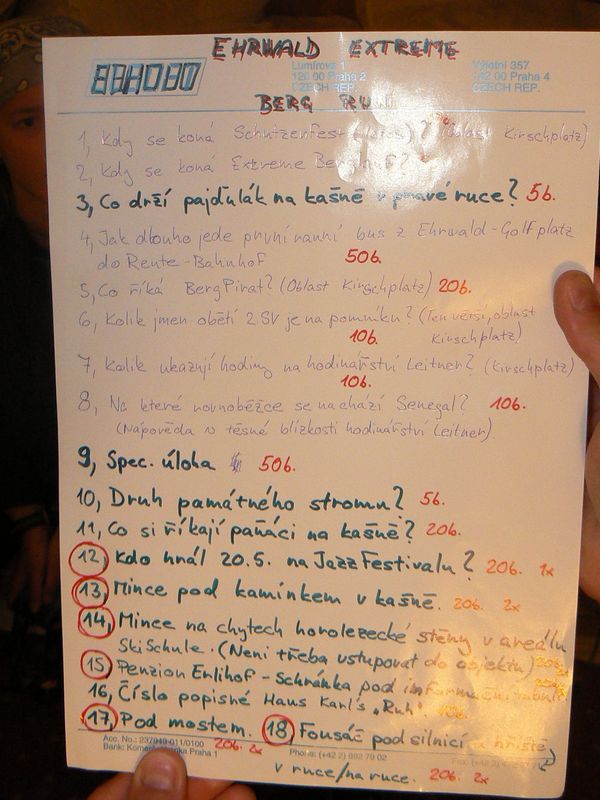 EHRWALD EXTREME
Lumírova 1
120 00 Praha 2
CZECH REP.
Výletní 357
142 00 Praha 4
CZECH REP.
BERG RUN
1, Kdy se koná Schützenfest ? (Oblast Kirschplatz)
2, Kdy se koná Extreme
3, Co drží pajďulák na kašně v pravé ruce? 5b.
4, Jak dlouho jede první ranní bus z Ehrwald-Golfplatz
do Reute-Bahnhof 50b.
5, Co říká BergPirat? (Oblast Kirschplatz) 20b.
6, Kolik jmen obětí 2.SV je na pomníku? (Ten větší, oblast
Kirschplatz)
10b.
7, Kolik ukazují hodiny na hodinářství Leitner? (Kirschplatz)
10b.
8, Na které rovnoběžce se nachází Senegal? 10b.
(Nápověda v těsné blízkosti hodinářství Leitner).
9, Spec. úloha 50b.
10, Druh památného stromu? 5b.
11, Co si říkají paňáci na kašně? 20b.
12, Kdo hrál 20.5. na JazzFestivalu? 20b. 1x
13, Mince pod kamínkem v kašně. 20b. 2x
14, Mince na chytech horolezecké stěny v areálu
SkiSchule. (Není třeba vstupovat do objektu) 20b.
15, Penzion Erlihof - Schránka pod informační
16, Číslo popisné Haus Karl's „Ruh". 10b.
17, Pod mostem. 18, Fousáč pod silnicí u hřiště
20b. 2x
v ruce/na ruce. 20b. 2x
Acc. No.: 237949-011/0100
Bank: Praha 1
Phone: (+42 2) 692 79 02